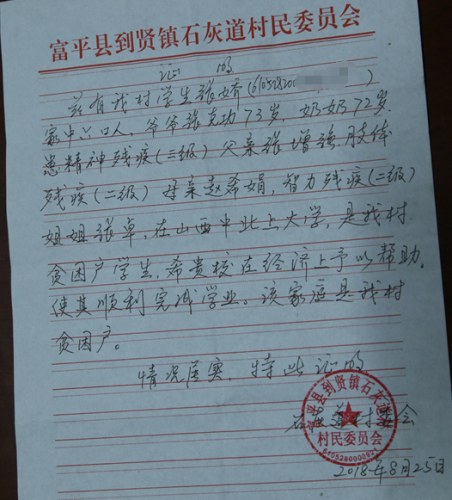 富平县到贤镇石灰道村民委员会
证 明
兹有我村学生张娇(610528200
家中六口人。爷爷张克功73岁,奶奶72岁
患精神残疾(二级)父亲张增强,肢体
残疾(二级)母亲赵希娟,智力残疾(二级)
姐姐张卓,在山西中北上大学,是我村
贫困户学生,希贵校在经济上予以帮助,
使其顺利完成学业。该家庭是我村
贫困户。
情况属实,特此证明
石灰道村委会
富平县到贤镇石灰道
村民委员会
2018年8月25日